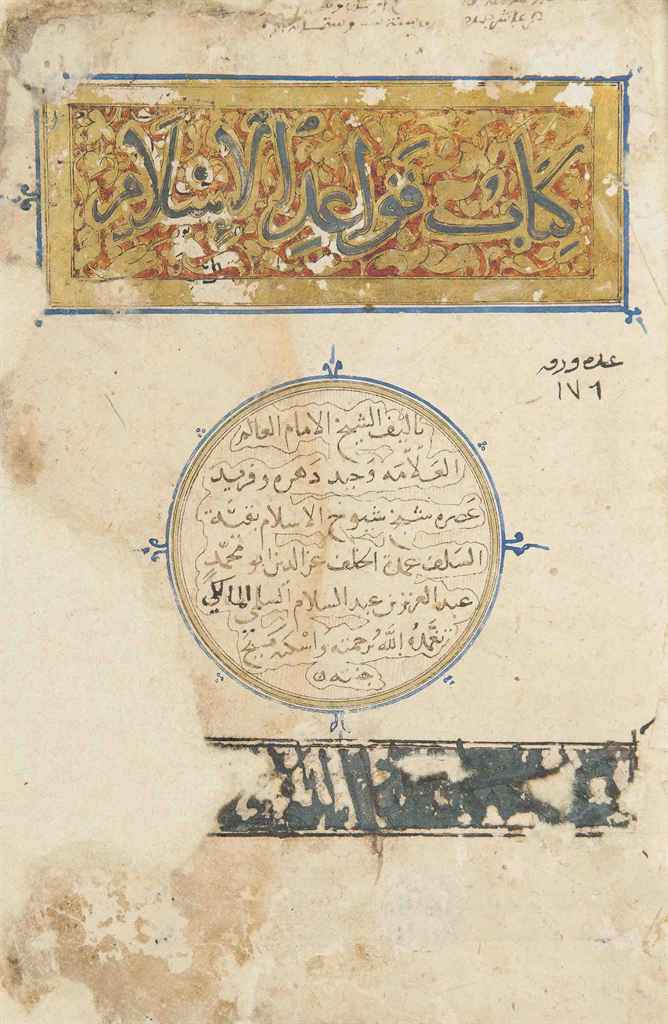 كتاب قواعد الإسلام
عدد ورق
١٧٦
تأليف الشيخ الامام العالم
العلّامه وحيد دهره وفريد
عصره شيخ شيوخ الاسلام بقيّة
السلف عمدة الخلف عز الدين ابو محمّد
عبد العزيز بن عبد السلام السلمي المالكي
تغمّده اللّه برحمته واسكنه فسيح
جنته